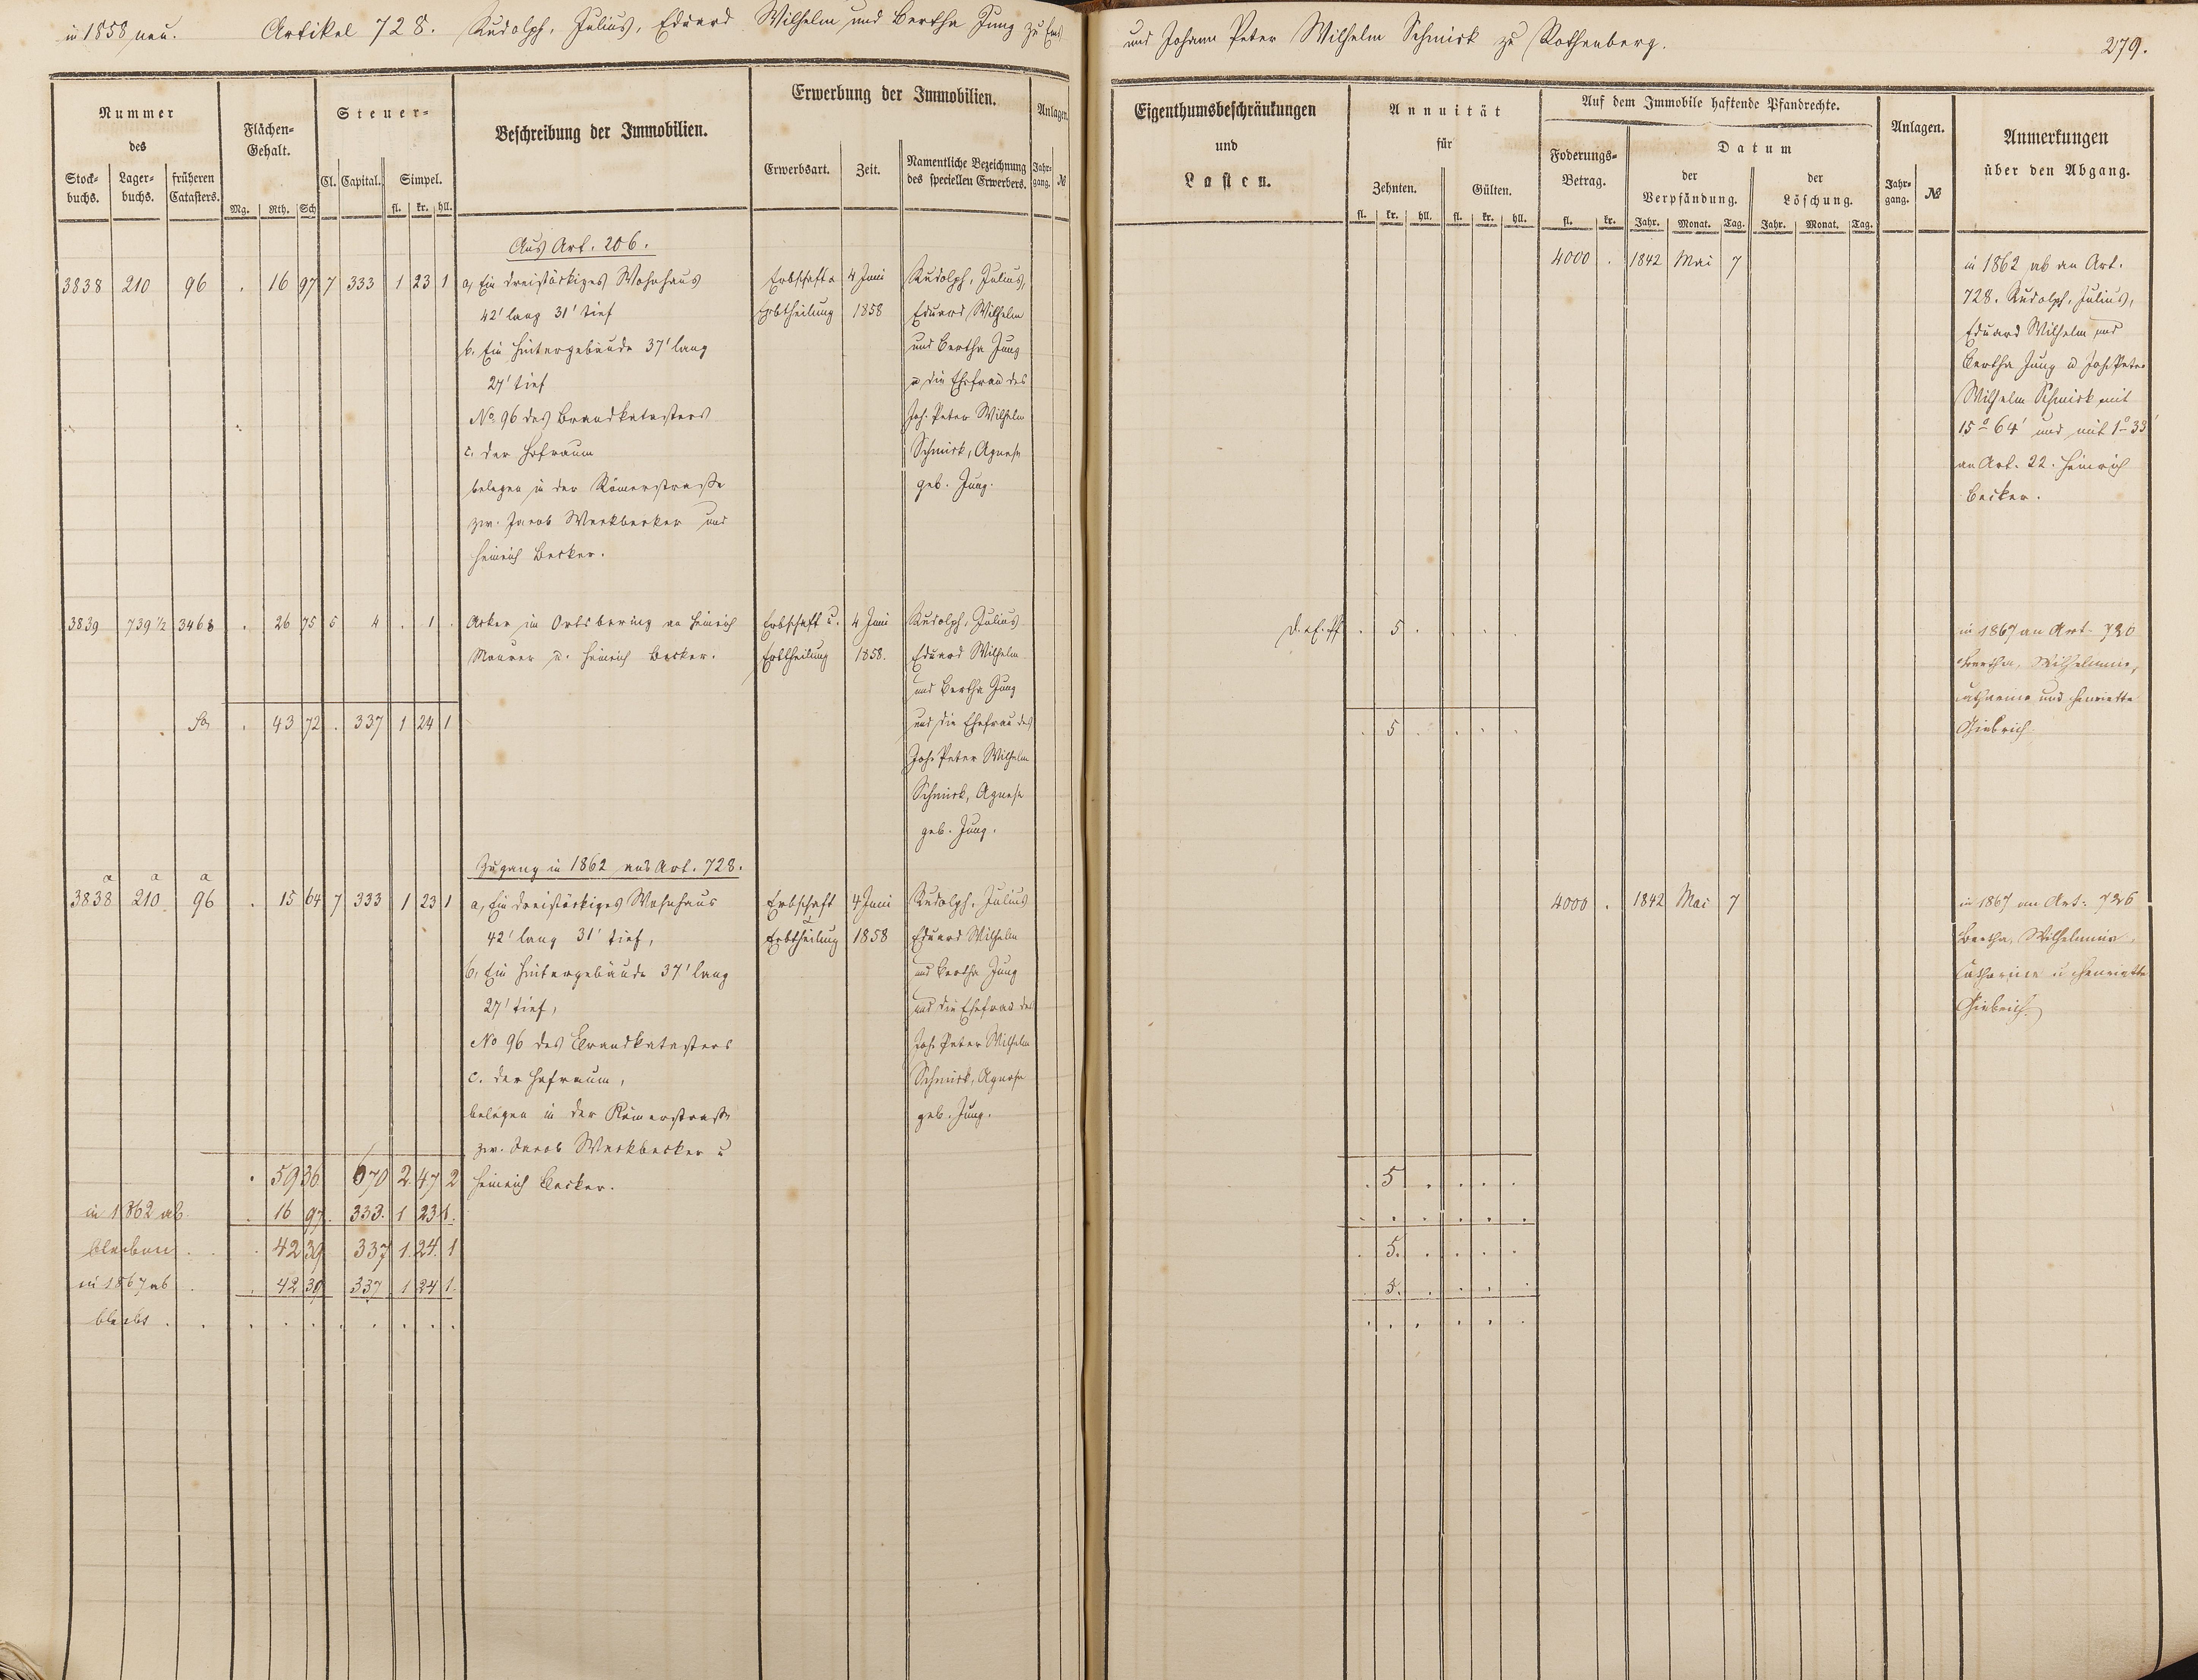 in 1858 neu. Artikel 728. Rudolph, Julius, Eduard Wilhelm und Bertha Jung zu Ems
und Johann Peter Wilhelm Schmick zu Rothenberg. 279.
Nummer
des
Stock-
buchs.
Lager-
buchs.
früheren
Catasters.
Flächen-
Gehalt.
Mg. Rth. Sch
Steuer-
Cl. Capital. Simpel.
fl. kr. hll.
Beschreibung der Immobilien.
Erwerbung der Immobilien.
Erwerbsart. Zeit.
Namentliche Bezeichnung
des speciellen Erwerbers.
Anlagen.
Jahr-
gang. №
Eigenthumsbeschränkungen
und
Lasten.
Annuität
für
Zehnten. Gülten.
fl. kr. hll. fl. kr. hll.
Auf dem Immobile haftende Pfandrechte.
Foderungs-
Betrag.
fl. kr.
Datum
der
Verpfändung.
Jahr. Monat. Tag.
der
Löschung.
Jahr. Monat. Tag.
Anlagen.
Jahr-
gang. №
Anmerkungen
über den Abgang.
Aus Art. 206.
3838 210 96 . 16 97 7 333 1 23 1
a, Ein dreistöckiges Wohnhaus
42' lang 31' tief
b. Ein Hintergebäude 37' lang
27' tief
No. 96 des Brandkatasters
c. der Hofraum
belegen in der Römerstraße
zw. Jacob Werkbecker und
Heinrich Becker.
Erbschaft u
Erbtheilung
4 Juni
1858
Rudolph, Julius,
Eduard Wilhelm
und Bertha Jung
u die Ehefrau des
Joh. Peter Wilhelm
Schmick, Agnese
geb. Jung.
4000 . 1842 Mai 7
in 1862 ab an Art.
728. Rudolph, Julius,
Eduard Wilhelm und
Bertha Jung u Joh. Peter
Wilhelm Schmick mit
15° 64' und mit 1° 33'
an Art. 22. Heinrich
Becker.
3839 739 1/2 3468 . 26 75 5 4 . 1 .
Acker im Ortsbering an Heinrich
Maurer u. Heinrich Becker.
Erbschaft u.
Erbtheilung
4 Juni
1858.
Rudolph, Julius
Eduard Wilhelm
und Bertha Jung
und die Ehefrau des
Joh. Peter Wilhelm
Schmick, Agnese
geb. Jung.
. 5 . . . .
in 1867 an Art.
Bertha, Wilhelmine,
Catharine und Henriette
. 43 72 . 337 1 24 1
. 5 . . . .
Zugang in 1862 aus Art. 728.
a a a
3838 210 96 . 15 64 7 333 1 23 1
a, Ein dreistöckiges Wohnhaus
42' lang 31' tief,
b, Ein Hintergebäude 37' lang
27' tief,
No 96 des Brandkatasters
c. der Hofraum,
belegen in der Römerstraße
zw. Jacob Werkbecker u
Heinrich Becker.
Erbschaft
u
Erbtheilung
4 Juni
1858
Rudolph, Julius
Eduard Wilhelm
und Bertha Jung
und die Ehefrau des
Joh. Peter Wilhelm
Schmick, Agnese
geb. Jung.
4000 . 1842 Mai 7
in 1867 an Art.
Bertha, Wilhelmine,
Catharine u Henriette
. 59 36 670 2 47 2 . 5 . . . .
in 1862 ab . 16 97 . 333. 1 23 1. . . . . . .
bleiben . . 42 39 337 1. 24. 1 . 5. . . . .
in 1867 ab . . 42 39 337 1 24 1. 5. . . . .
bleibt . . . . . . . . . . . . . . . .